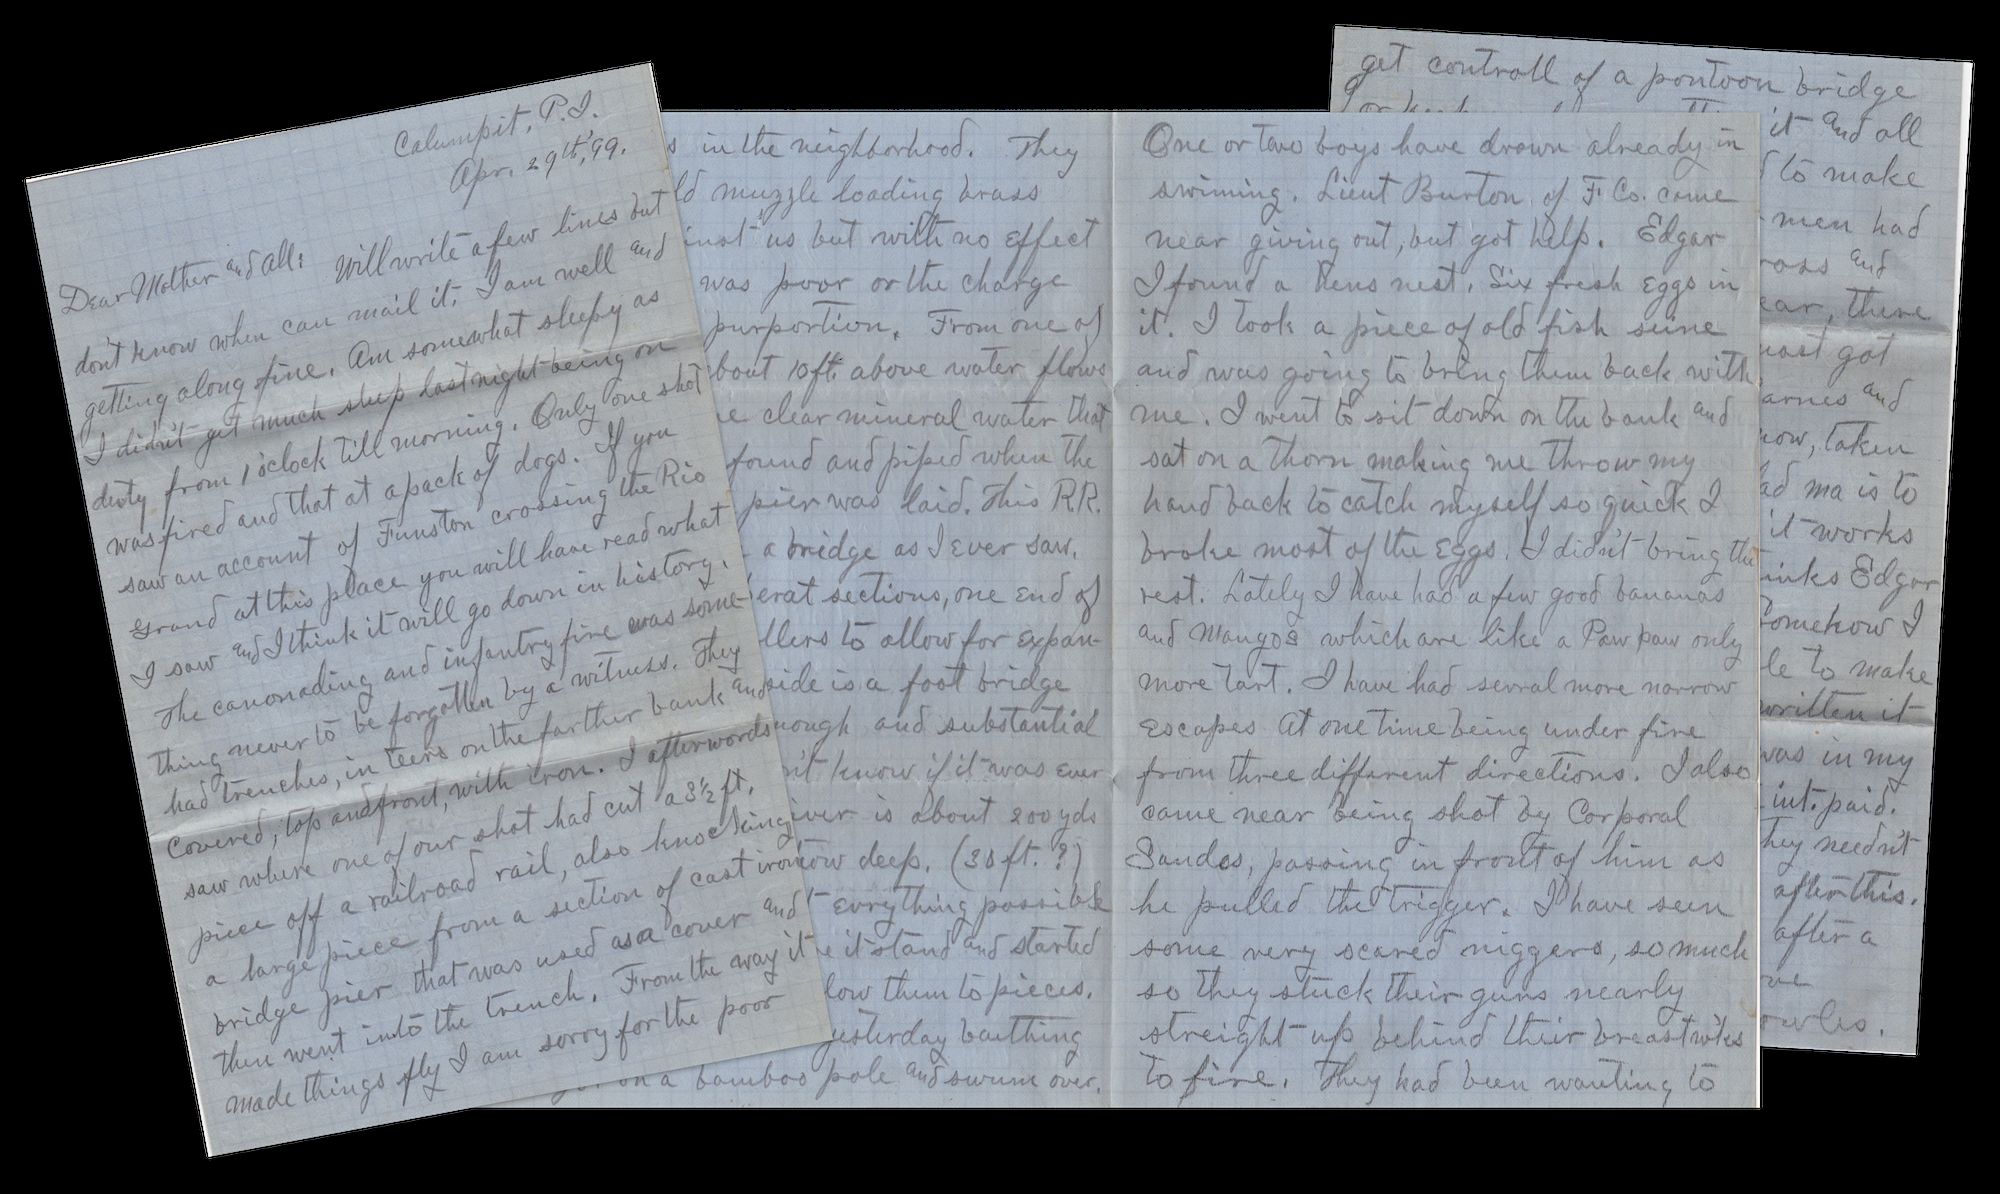 Calumpit, P.I.
Apr. 29th, 99.
Dear Mother and all: Will write a few lines but
don't know when can mail it. I am well and
getting along fine. Am somewhat sleepy as
I didn't get much sleep last night being on
duty from 1 o'clock till morning. Only one shot
was fired and that at a pack of dogs. If you
saw an account of Funston crossing the Rio
Grand at this place you will have read what
I saw and I think it will go down in history.
The canonading and infantry fire was some-
thing never to be forgotten by a witness. They
had trenches, in teers on the farther bank and
covered, top and front, with iron. I afterwords
saw where one of our shot had cut a 3½ ft.
piece off a railroad rail, also knocking
a large piece from a section of cast iron
bridge pier that was used as a cover and
then went into the trench. From the way it
made things fly I am sorry for the poor
s in the neighborhood. They
ld muzzle loading brass
inst us but with no effect
was poor or the charge
purportion. From one of
bout 10ft. above water flows
e clear mineral water that
found and piped when the
pier was laid. This R.R.
a bridge as I ever saw.
erat sections, one end of
llers to allow for expan-
side is a foot bridge
nough and substantial
n't know if it was ever
iver is about 200 yds
ow deep. (30 ft. ?)
t evrything possible
e it stand and started
low them to pieces.
yesterday baithing
on a bamboo pole and swum over.
One or two boys have drown already in
swiming. Lieut Burton of F Co. came
near giving out, but got help. Edgar
I found a hens nest, six fresh eggs in
it. I took a piece of old fish seine
and was going to bring them back with
me. I went to sit down on the bank and
sat on a thorn making me throw my
hand back to catch myself so quick I
broke most of the eggs. I didn't bring the
rest. Lately I have had a few good bananas
and mangos which are like a Paw paw only
more tart. I have had sevral more narrow
escapes at one time being under fire
from three different directions. I also
came near being shot by Corporal
Sandes, passing in front of him as
he pulled the trigger. I have seen
some very scared niggers, so much
so they stuck their guns nearly
streight up behind their breastwks
to fire. They had been wanting to
get controll of a pontoon bridge
it and all
to make
men had
rass and
ear, there
most got
arnes and
now, taken
ad ma is to
it works
inks Edgar
Somehow I
le to make
written it
was in my
int. paid.
They needn't
after this.
after a
ve
owles.